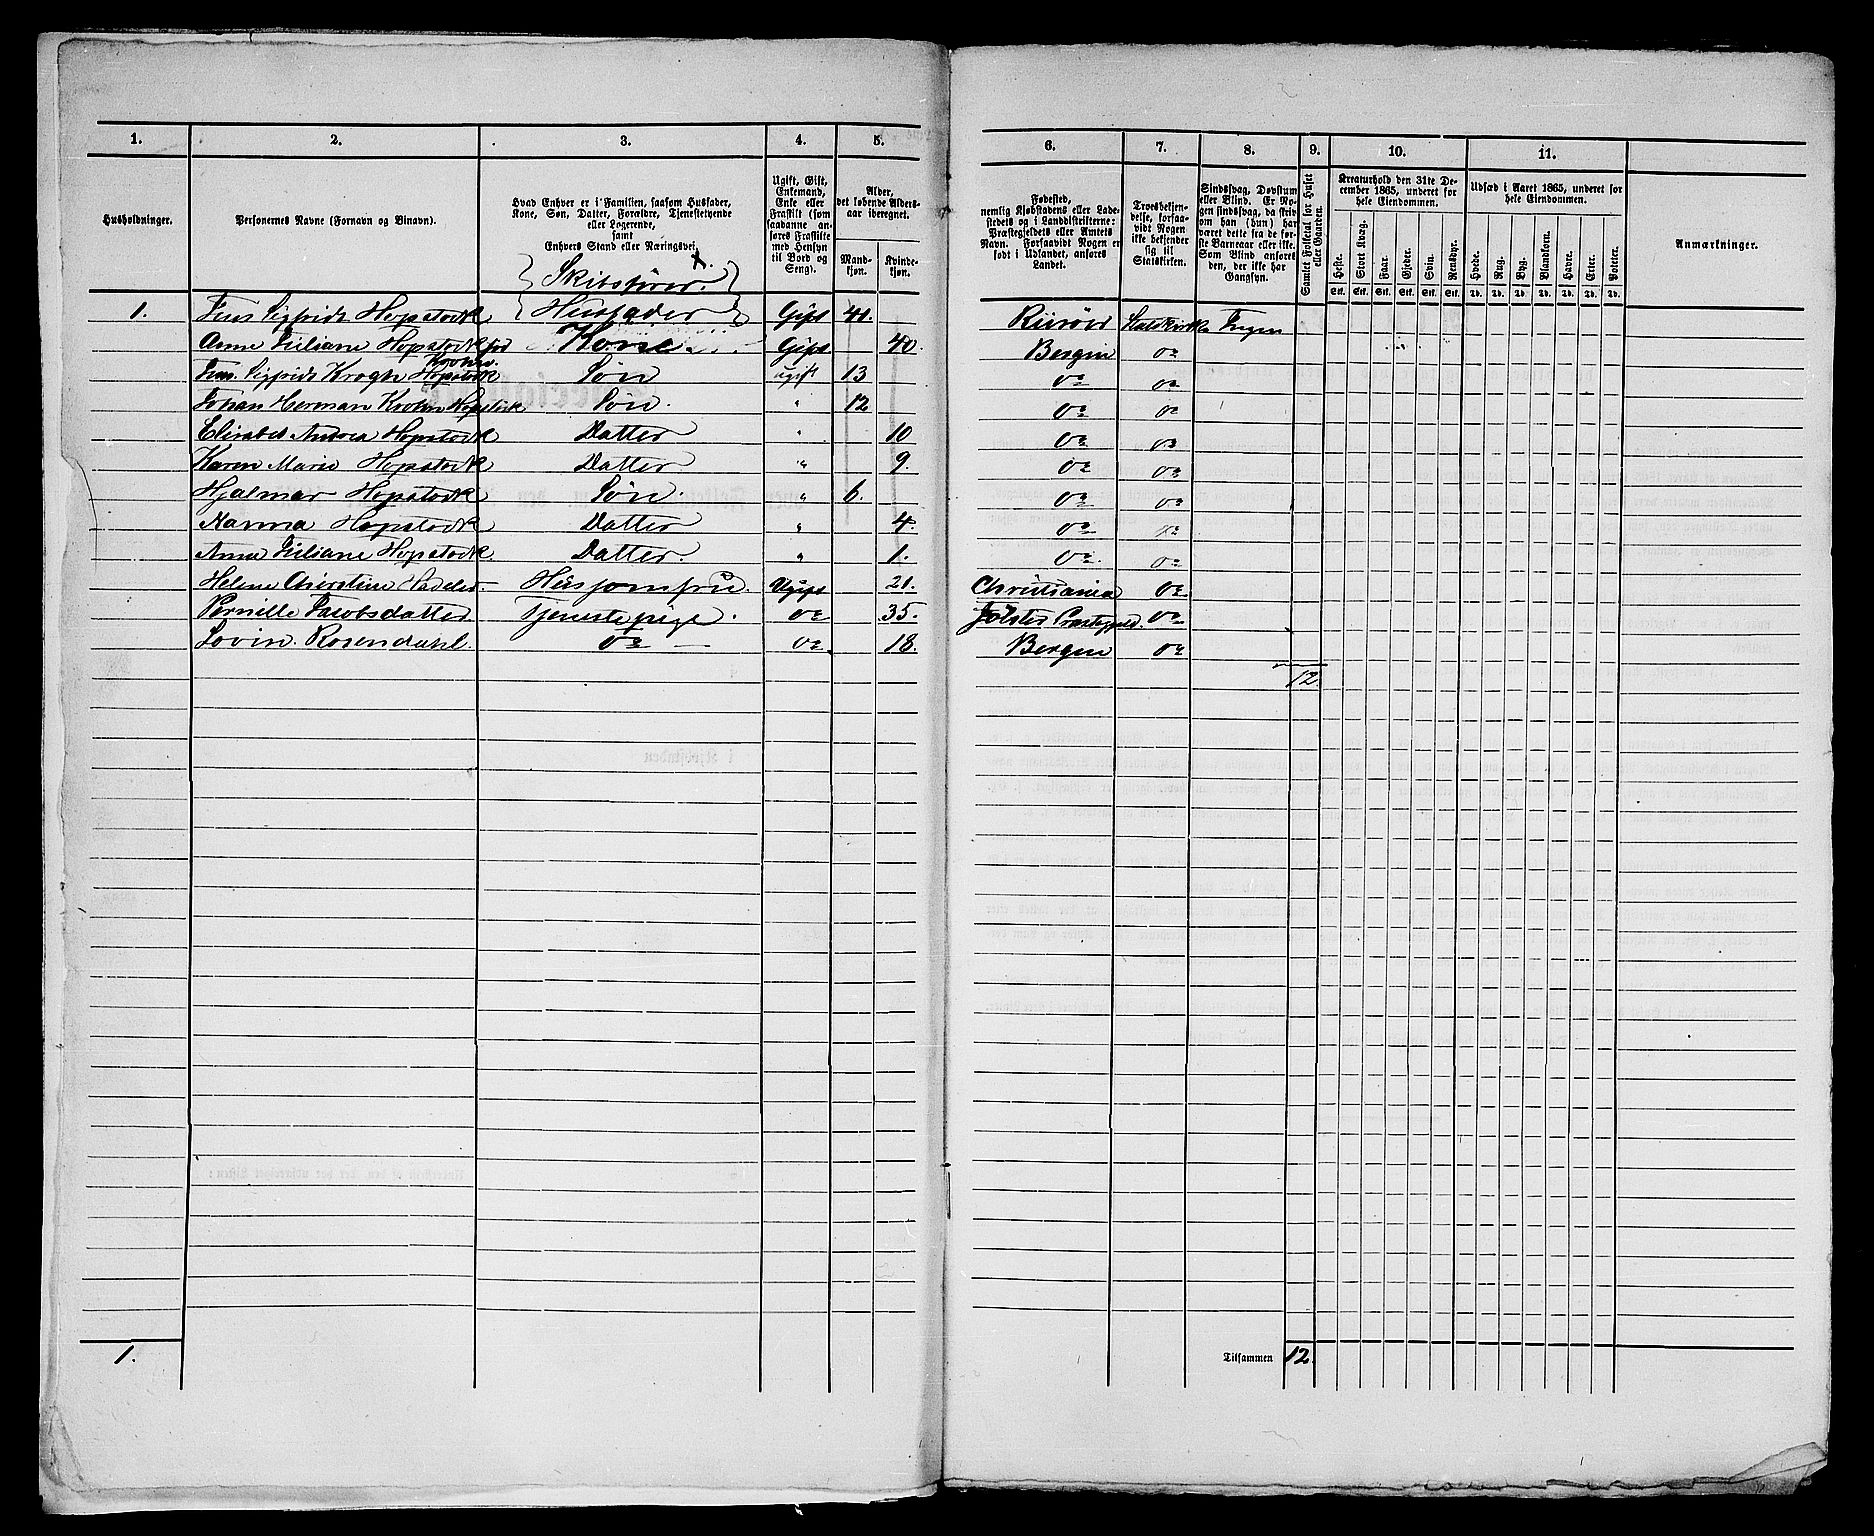 1. 2. 3. 4. 5. 6. 7. 8. 9. 10. 11.
Husholdninger.
Personernes Navne (Fornavn og Binavn).
Hvad Enhver er i Familien, saasom Husfader,
Kone, Søn, Datter, Forældre, Tjenestetyende
eller Logerende,
samt
Enhvers Stand eller Næringsvei.
Ugift, Gift,
Enkemand,
Enke eller
Fraskilt (som
saadanne an-
føres Fraskilte
med Hensyn
til Bord og
Seng).
Alder,
det løbende Alders-
aar iberegnet.
Mand-
kjøn.
Kvinde-
kjøn.
Fødested,
nemlig Kjøbstadens eller Lade-
stedets og i Landdistrikterne:
Præstegjeldets eller Amtets
Navn. Forsaavidt Nogen er
født i Udlandet, anføres
Landet.
Troesbekjen-
delse, forsaa-
vidt Nogen
ikke bekjender
sig til
Statskirken.
Sindssvag, Døvstum
eller Blind. Er No-
gen sindssvag, da skriv
om han (hun) har
været dette fra de før-
ste Barneaar eller ikke.
Som Blind anføres
den, der ikke har
Gangsyn.
Samlet Folketal for Huset
eller Gaarden.
Kreaturhold den 31te De-
cember 1865, underet for
hele Eiendommen.
Heste. Stort Kvæg. Faar. Gjeder. Svin. Rensdyr.
Stk. Stk. Stk. Stk. Stk. Stk.
Udsæd i Aaret 1865, underet for
hele Eiendommen.
Hvede. Rug. Byg. Blandkorn. Havre. Erter. Poteter.
Td. Td. Td. Td. Td. Td. Td.
Anmærkninger.
Skibsfører. x.
1. Jens Sigfrids Hopstock Husfader Gift 41. Riisöer Statskirke Ingen
Anne Juliane Hopstock Kone Gift 40. Bergen do
Krohn
Jens Sigfrids Krogh Hopstock Søn ugift 13 do do
Johan Herman Krohn Hopstock Søn. " 12 do do
Elisabet Andrea Hopstock Datter " 10 do do
Karen Marie Hopstock Datter " 9. do do
Hjalmar Hopstock Søn. " 6. do do
Hanna Hopstock Datter " 4. do do
Anna Juliane Hopstock Datter. " 1. do do
Helene Christine Husjomfru. Ugift 21. Christiania do
Pernille Jacobsdatter Tjenestepige. do 35. Jølster Præstegjeld do
Lovin. Rosendahl. do do 18. Bergen do
12.
1. Tilsammen 12.